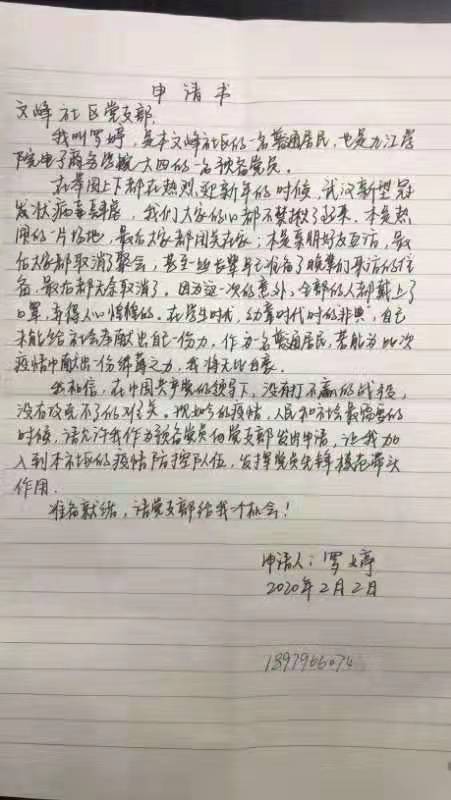 申请书
文峰社区党支部：
我叫罗婷，是本文峰社区的一名普通居民，也是九江学
院电子商务学院大四的一名预备党员。
在举国上下都在热烈迎新年的时候，武汉新型冠
状病毒，我们大家的心都不禁揪了起来。本是热
闹的一片场地，最后大家都闭关在家；本是亲朋好友互访，最
后大家都取消了聚会，甚至一些长辈早已准备了晚辈们来访的准
备，最后都去取消了。因为这一次的意外，全部的人都戴上了
口罩，弄得人心惶惶的。在学生时代，幼童时代时的非典，自己
未能给社会奉献出自己一份力，作为一名普通居民，若能为此次
疫情中献出一份绵薄之力，我将无比自豪。
我相信，在中国共产党的领导下，没有打不赢的战役，
没有攻克不了的难关。现如今的疫情，人民和社会最需要的
时候，请允许我作为预备党员向党支部发出申请，让我加
入到本社区的疫情防控队伍，发挥党员先锋模范带头
作用。
准备就绪，请党支部给我个机会！
申请人：罗婷
2020年2月2日
18979666074